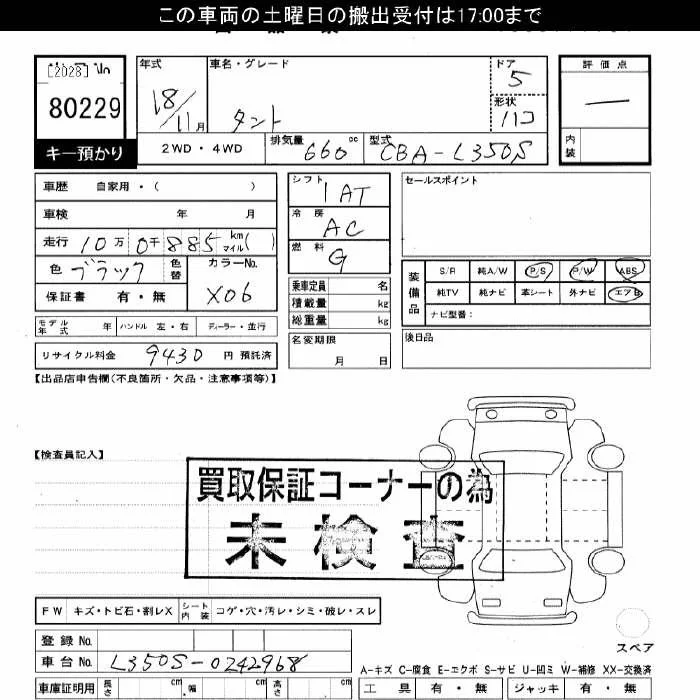 この車両の土曜日の搬出受付は17:00まで
[2028]
80229
キー預かり
年式 車名・グレード ドア 5
18/11月 タント 形状 ハコ
2WD・4WD 排気量 660 cc 型式 CBA-L350S
評価点
—
内装
車歴 自家用・( )
車検 年 月
走行 10万 0千885 km マイル( )
色 ブラック 色替 カラーNo. X06
保証書 有・無
モデル年式 年 ハンドル 左・右 ディーラー・並行
リサイクル料金 9430 円 預託済
シフト 1AT
冷房 AC
燃料 G
乗車定員 名
積載量 kg
総重量 kg
名変期限
月 日
セールスポイント
装備品
S/R 純A/W P/S P/W ABS
純TV 純ナビ 革シート 外ナビ エアB
ナビ型番:
後日品
【出品店申告欄(不良箇所・欠品・注意事項等)】
【検査員記入】
買取保証コーナーの為
未検査
FW キズ・トビ石・割レX シート内装 コゲ・穴・汚レ・シミ・破レ・スレ
登録No.
車台No. L350S-0242968
車庫証明用 長さ cm 幅 cm 高さ cm
スペア
A-キズ C-腐食 E-エクボ S-サビ U-凹ミ W-補修 XX-交換済
工具 有・無 ジャッキ 有・無